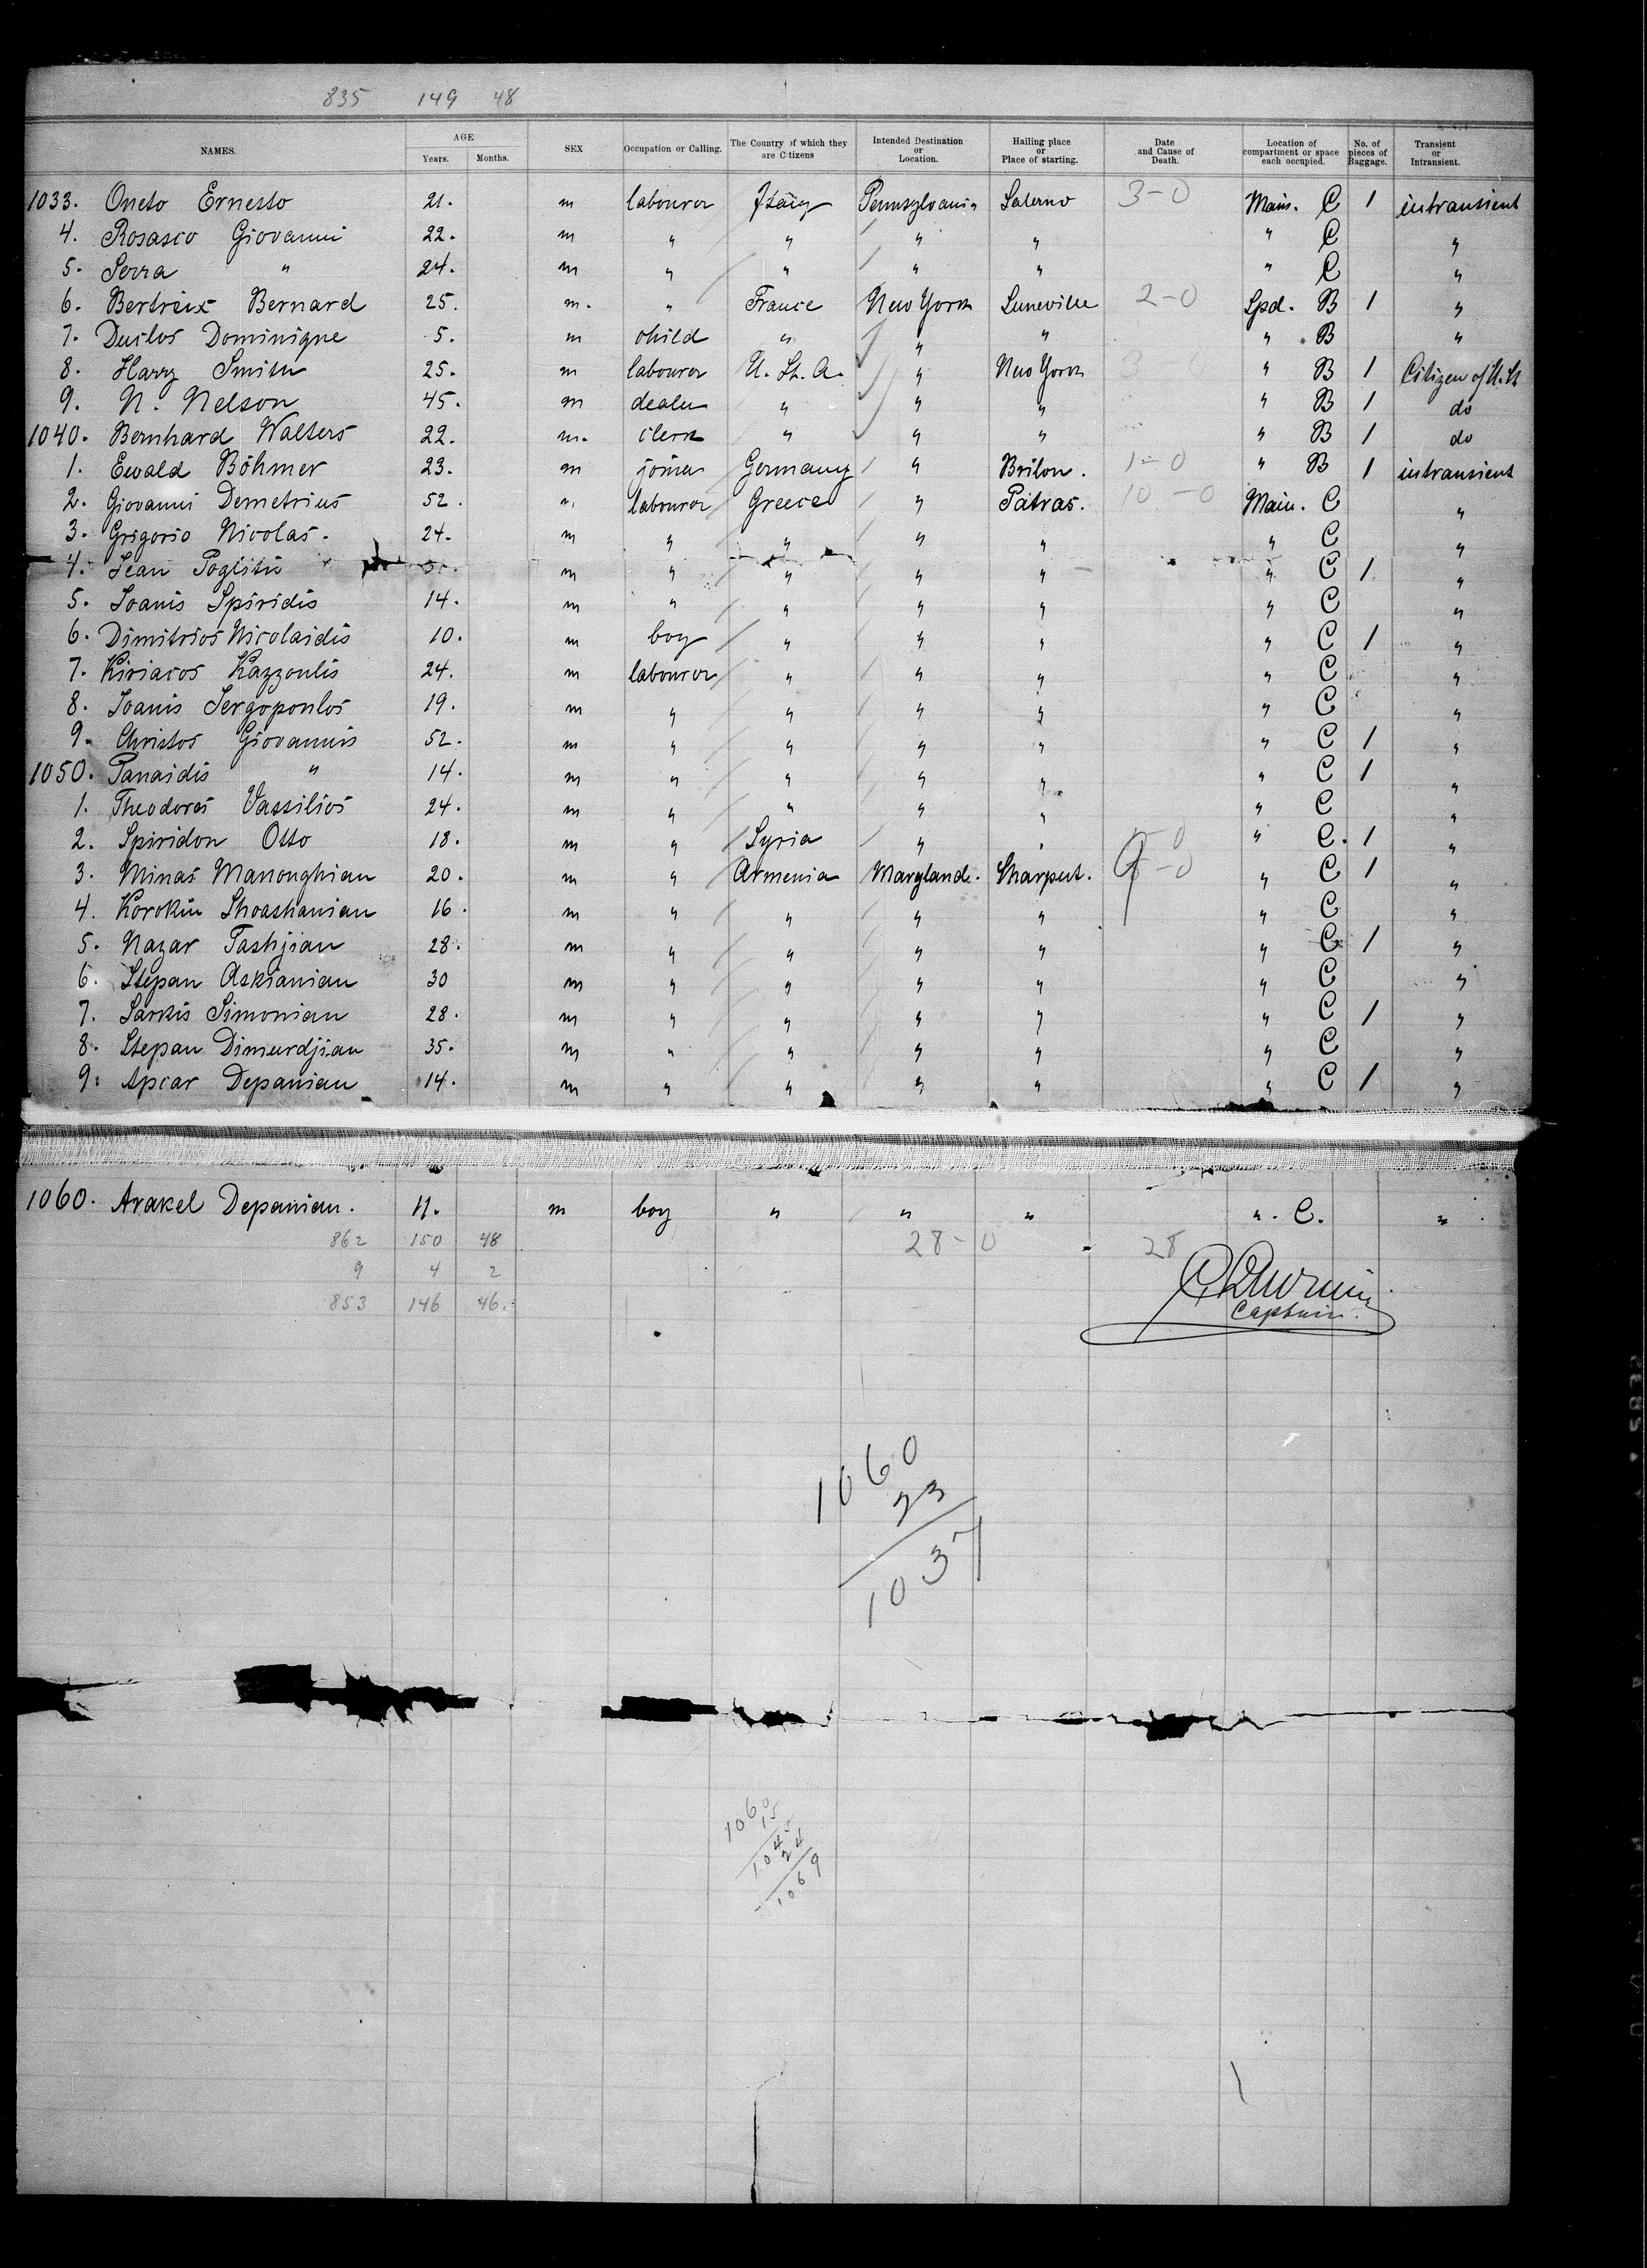 835 149 48
NAMES. AGE Years. Months. SEX Occupation or Calling. The Country of which they are Citizens Intended Destination or Location. Hailing place or Place of starting. Date and Cause of Death. Location of compartment or space each occupied. No. of pieces of Baggage. Transient or Intransient.
1033. Oneto Ernesto 21. m labourer Italy Pennsylvania Salerno 3-0 Main. C 1 intransient
4. Rosasco Giovanni 22. m " " " " " C "
5. Serra " 24. m " " " " " C "
6. Bertreix Bernard 25. m. " France New York Luneville 2-0 Spd. B 1 "
7. Duclos Dominique 5. m child " " " " B "
8. Harry Smith 25. m labourer U. St. A. " New York 3 " B 1 Citizen of U. St
9. N. Nelson 45. m dealer " " " " B 1 do
1040. Bernhard Walters 22. m. clerk " " " " B 1 do
1. Ewald Böhmer 23. m joiner Germany " Brilon. 1-0 " B 1 intransient
2. Giovanni Demetrius 52. " labourer Greece " Patras. 10-0 Main. C "
3. Grigorio Nicolas. 24. m " " " " " C "
4. Jean Poglitis m " " " " " C 1 "
5. Joanis Spiridis 14. m " " " " " C "
6. Dimitrios Nicolaidis 10. m boy " " " " C 1 "
7. Kiriacos Kazzoulis 24. m labourer " " " " C "
8. Joanis Sergopoulos 19. m " " " " " C "
9. Christos Giovannis 52. m " " " " " C 1 "
1050. Panaidis " 14. m " " " " " C 1 "
1. Theodoros Vassilios 24. m " " " " " C "
2. Spiridon Otto 18. m " Syria " " " C. 1 "
3. Minas Manoughian 20. m " Armenia Maryland. Kharput. " C 1 "
4. Korokin Shoashanian 16. m " " " " " C "
5. Nazar Tashjian 28. m " " " " " C 1 "
6. Stepan Askianian 30 m " " " " " C "
7. Sarkis Simonian 28. m " " " " " C 1 "
8. Stepan Dimurdjian 35. m " " " " " C "
9. Apcar Depanian 14. m " " " " " C 1 "
1060. Arakel Depanian. 11. m boy " " " ". C. "
862 150 48 28-0 28
9 4 2
853 146 46.
Captain.
1060
23
1037
1060
15
1045
24
1069